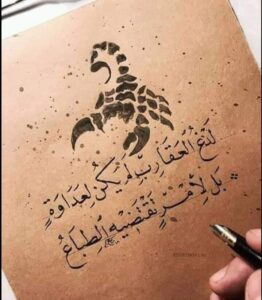 لَدْغُ العَقَارِبِ لَمْ يَكُنْ لِعَدَاوَةٍ
بَلْ لِأَمْرٍ تَقْتَضِيهِ الطِّبَاعُ